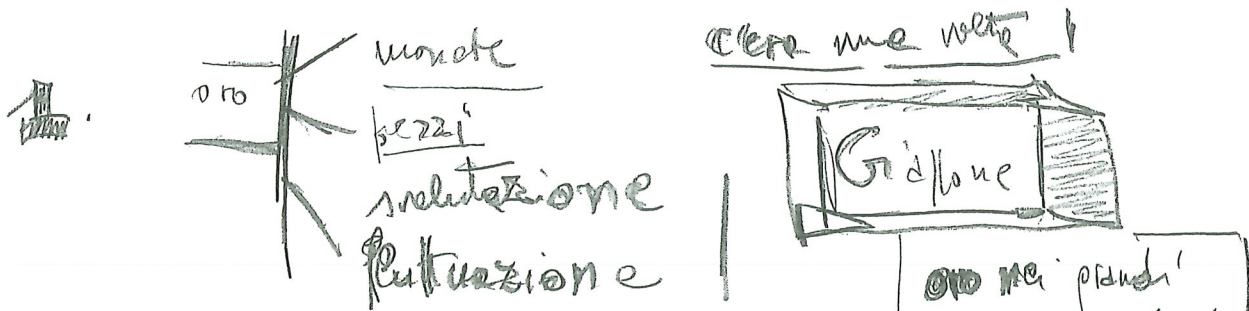 1.
oro
monete
pezzi
svalutazione
fluttuazione
C'era una volta
Giappone
oro nei